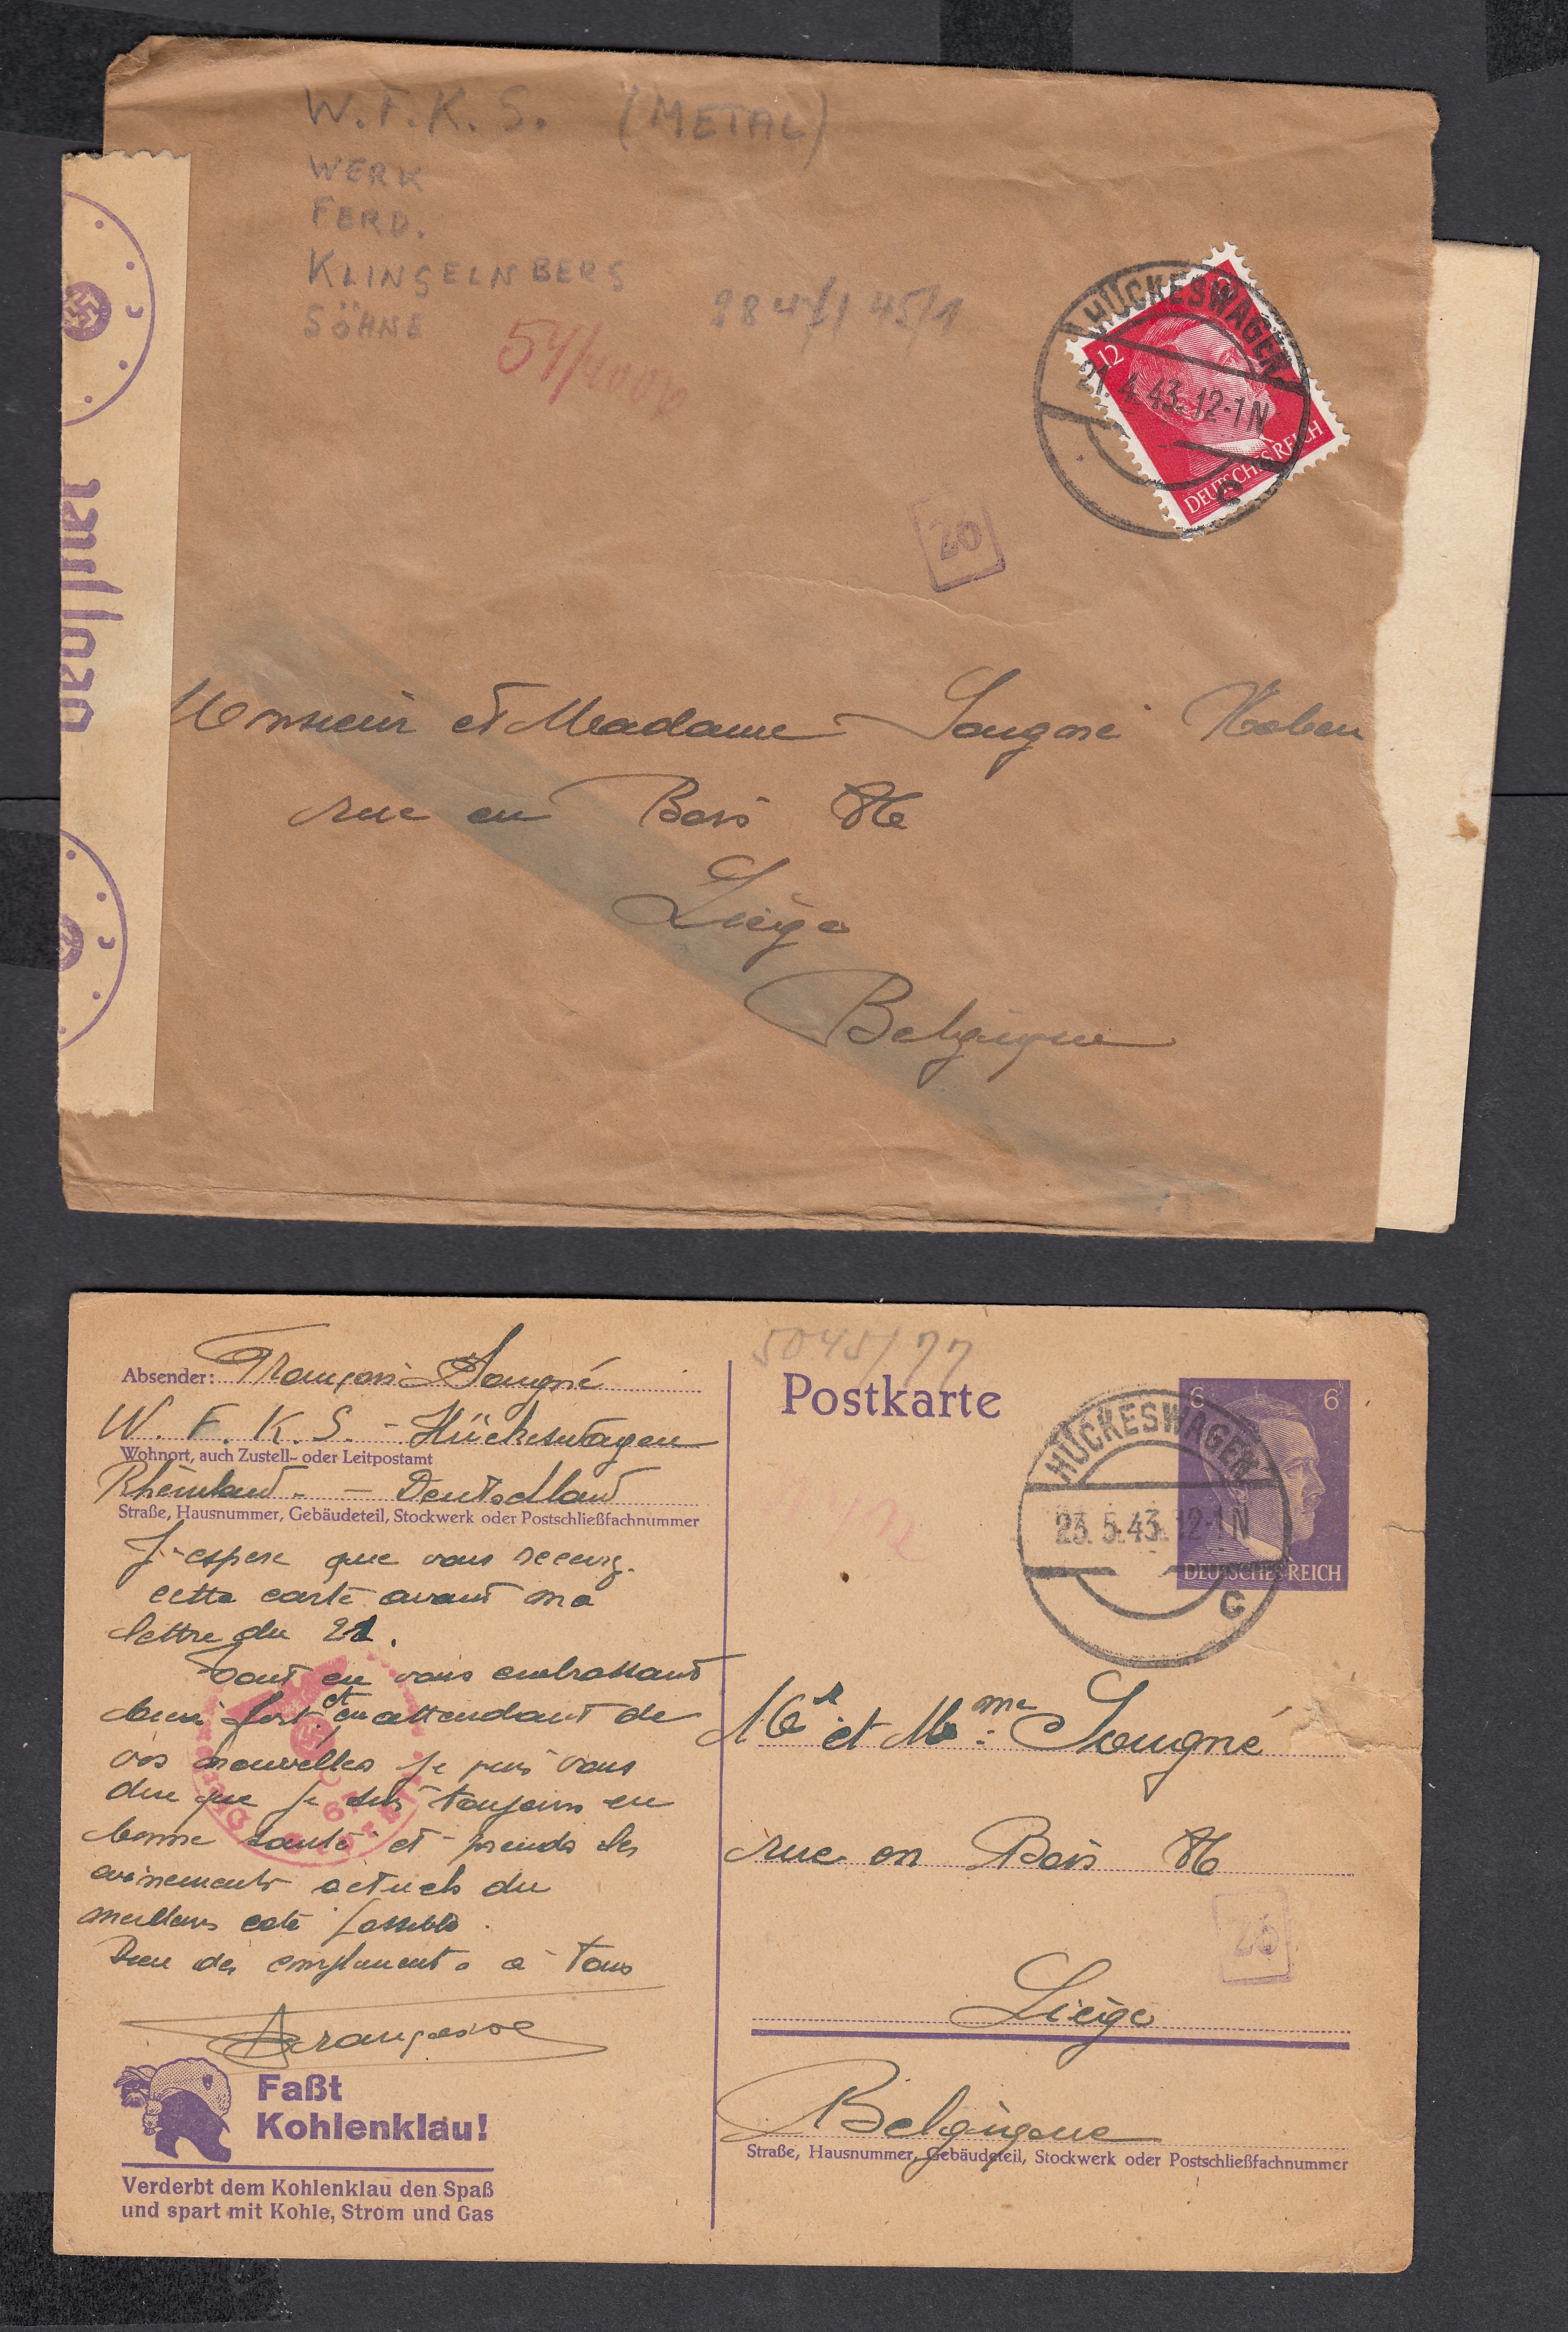 W.F.K.S. (METAL)
WERK
FERD.
KLINGELNBERG
SÖHNE
HÜCKESWAGEN
12
21.4.43.12-1N
DEUTSCHES REICH
c
20
Geöffnet
c
c
Monsieur et Madame Sougné
rue en Bois 86
Liége
Belgique
5045/77
Absender: François Sougné
W. F. K. S. - Hückeswagen
Wohnort, auch Zustell- oder Leitpostamt
Rheinland - Deutschland
Straße, Hausnummer, Gebäudeteil, Stockwerk oder Postschließfachnummer
J'espere que vous recevrez
cette carte avant ma
lettre du 21.
Tout en vous embrassant
bien fort et en attendant de
vos nouvelles je puis vous
dire que je suis toujours en
bonne santé et prends les
evènements actuels du
meilleur coté possible.
Bien des compliments a tous
Françoise
Faßt
Kohlenklau!
Verderbt dem Kohlenklau den Spaß
und spart mit Kohle, Strom und Gas
Postkarte
6 6
HÜCKESWAGEN
23.5.43.12-1N
DEUTSCHES REICH
c
Mr et Mme Sougné
rue en Bois 86
26
Liége
Belgique
Straße, Hausnummer, Gebäudeteil, Stockwerk oder Postschließfachnummer